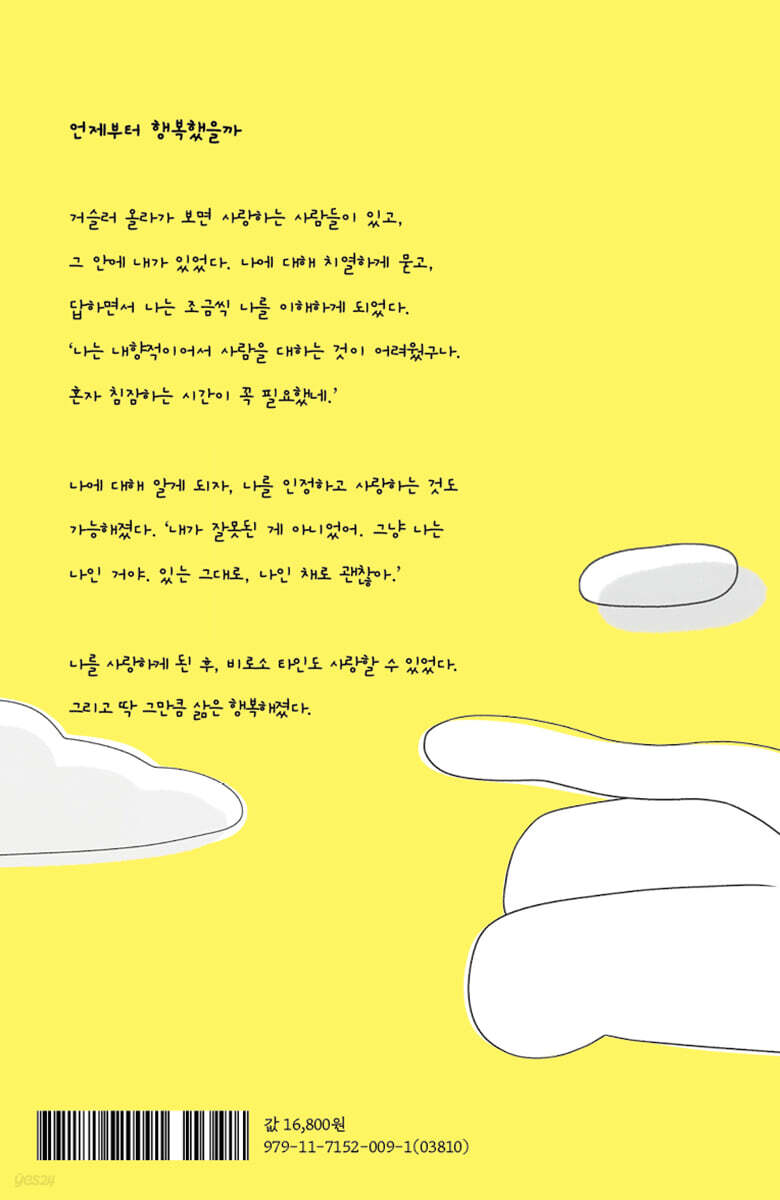 언제부터 행복했을까
거슬러 올라가 보면 사랑하는 사람들이 있고,
그 안에 내가 있었다. 나에 대해 치열하게 묻고,
답하면서 나는 조금씩 나를 이해하게 되었다.
‘나는 내향적이어서 사람을 대하는 것이 어려웠구나.
혼자 침잠하는 시간이 꼭 필요했네.’
나에 대해 알게 되자, 나를 인정하고 사랑하는 것도
가능해졌다. ‘내가 잘못된 게 아니었어. 그냥 나는
나인 거야. 있는 그대로, 나인 채로 괜찮아.’
나를 사랑하게 된 후, 비로소 타인도 사랑할 수 있었다.
그리고 딱 그만큼 삶은 행복해졌다.
값 16,800원
979-11-7152-009-1(03810)
yes24